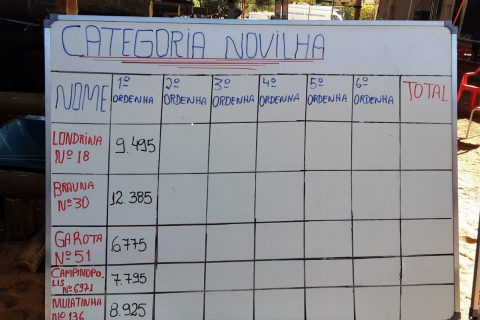 CATEGORIA NOVILHA
NOME 1º ORDENHA 2º ORDENHA 3º ORDENHA 4º ORDENHA 5º ORDENHA 6º ORDENHA TOTAL
LONDRINA Nº 18 9.495
BRAUNA Nº 30 12.385
GAROTA Nº 51 6775
CAMPINÓPOLIS Nº 6971 7.795
MULATINHA Nº 136 8.925